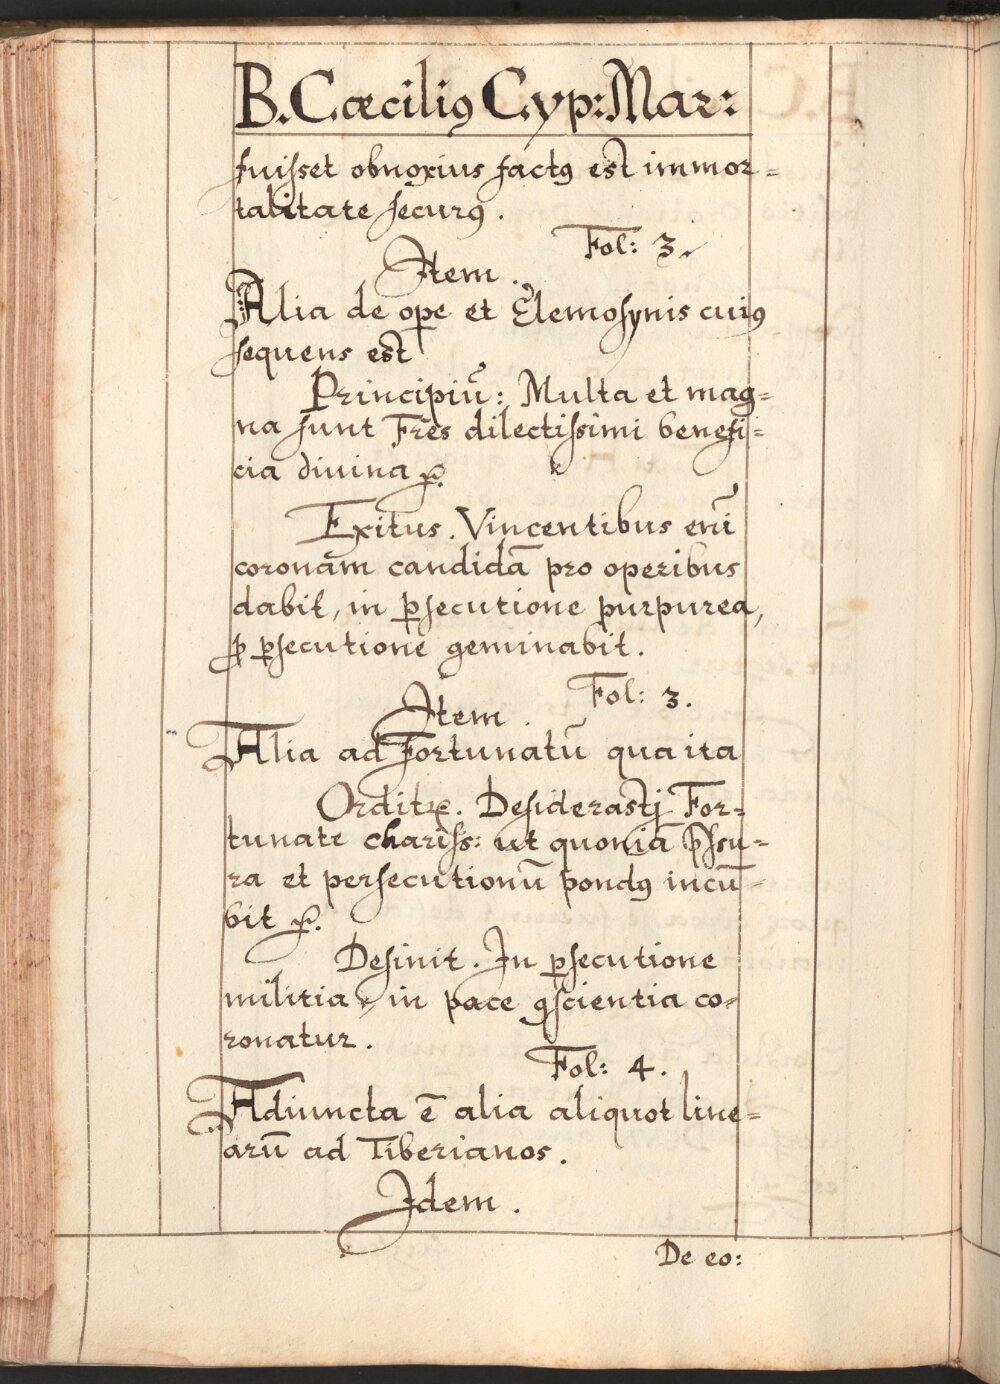 B. Cæcilius Cyp: Mar:
fuisset obnoxius factus est immor=
talitate securus.
Fol: 3.
Item.
Alia de ope et Elemosynis cuius
sequens est
Principiū: Multa et mag=
na sunt Fr̄es dilectissimi benefi=
cia divina ꝛc.
Exitus. Vincentibus em̄
coronam candidā pro operibus
dabit, in ꝑsecutione purpurea,
ꝓ ꝑsecutione geminabit.
Fol: 3.
Item.
Alia ad Fortunatū qua ita
Orditꝛ. Desiderasti For=
tunate chariss: ut quoniā p̄ssu=
ra et persecutionū pondus incū=
bit ꝛc.
Desinit. In ꝑsecutione
militia, in pace ꝯscientia co=
ronatur.
Fol: 4.
Adiuncta ē alia aliquot line=
arū ad Tiberianos.
Idem.
De eo: